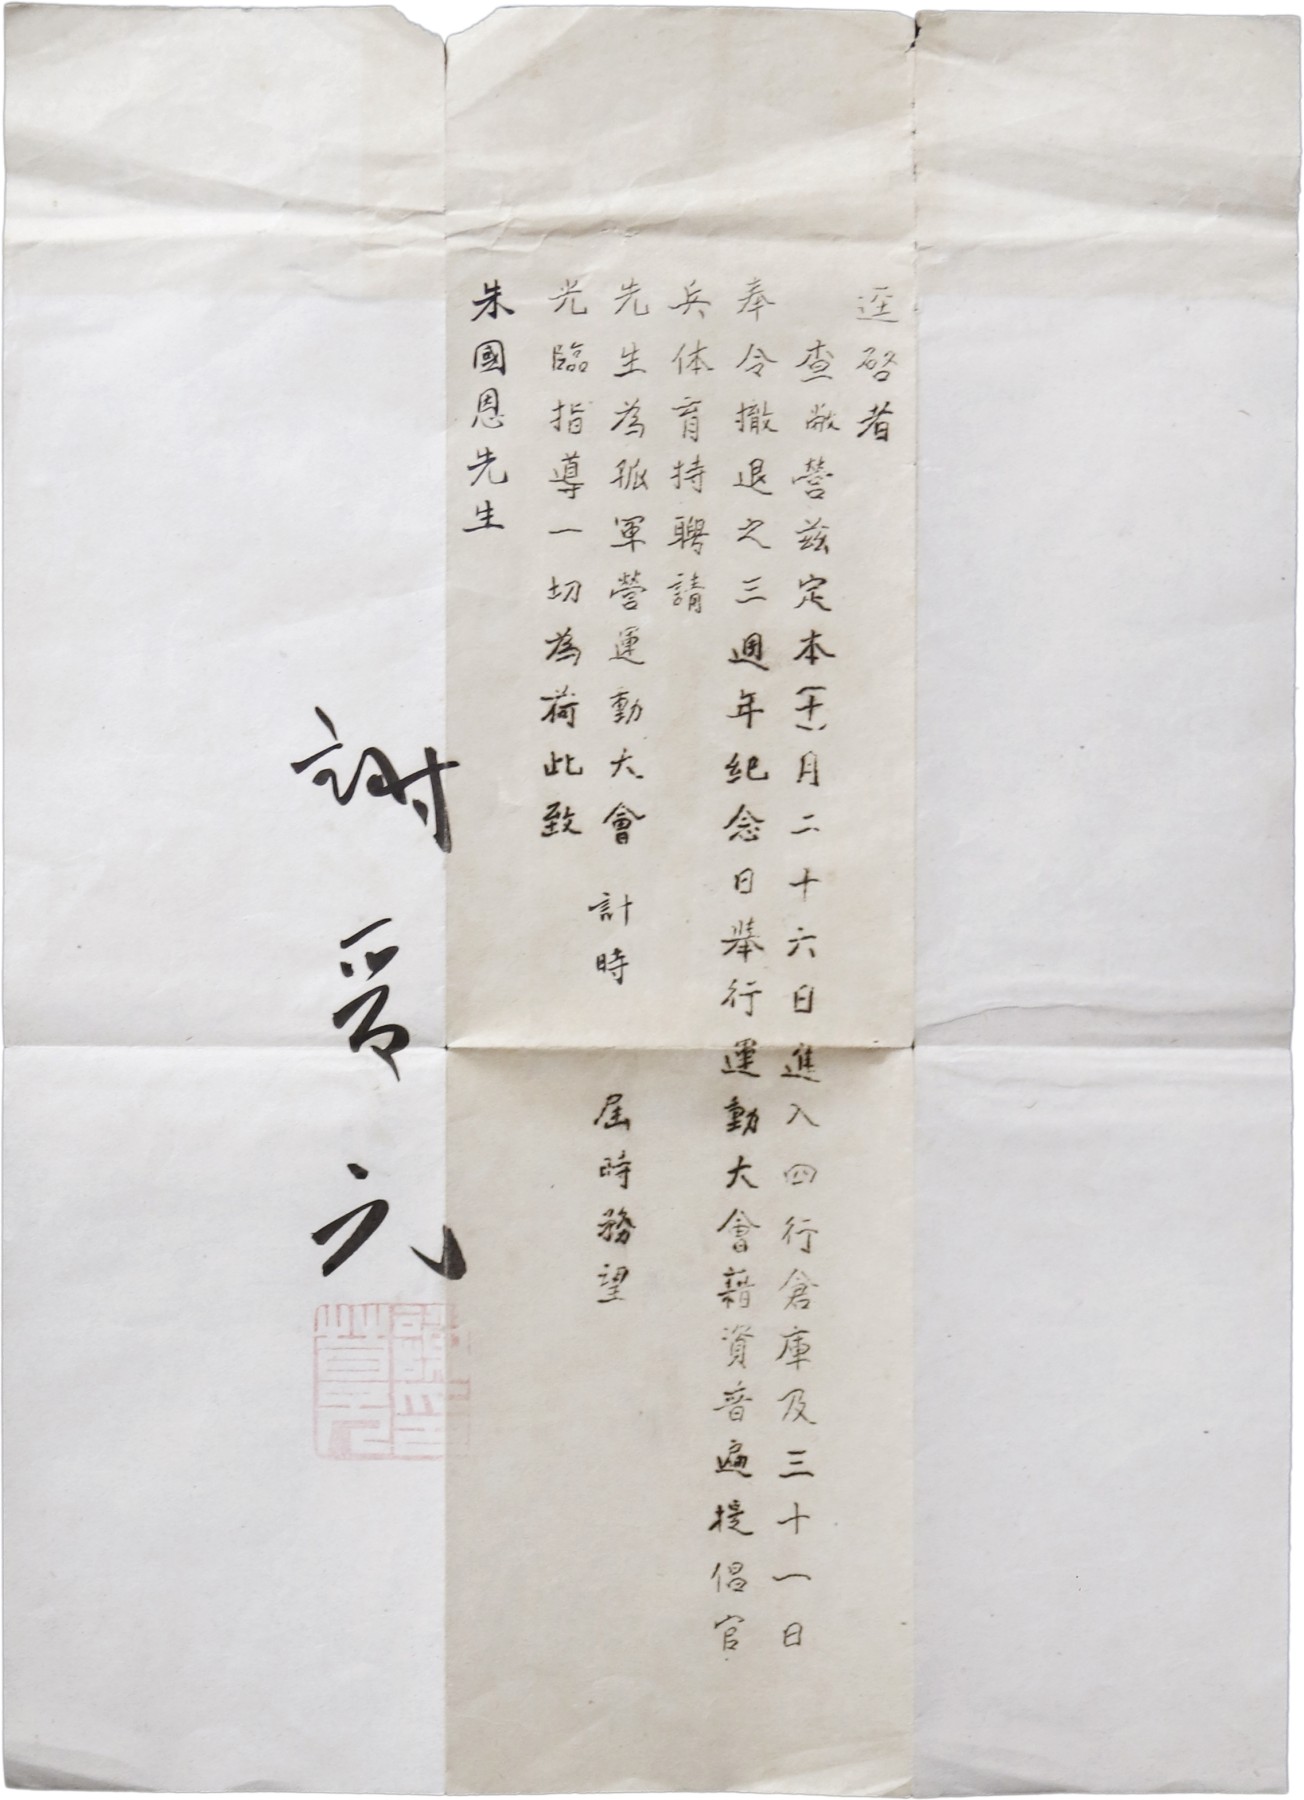 逕啓者
查敝營茲定本(十)月二十六日進入四行倉庫及三十一日
奉令撤退之三週年紀念日舉行運動大會藉資普遍提倡官
兵体育持聘請
先生為孤軍營運動大會 計時 屆時務望
光臨指導一切為荷此致
朱國恩先生
謝晋元
謝晋元印